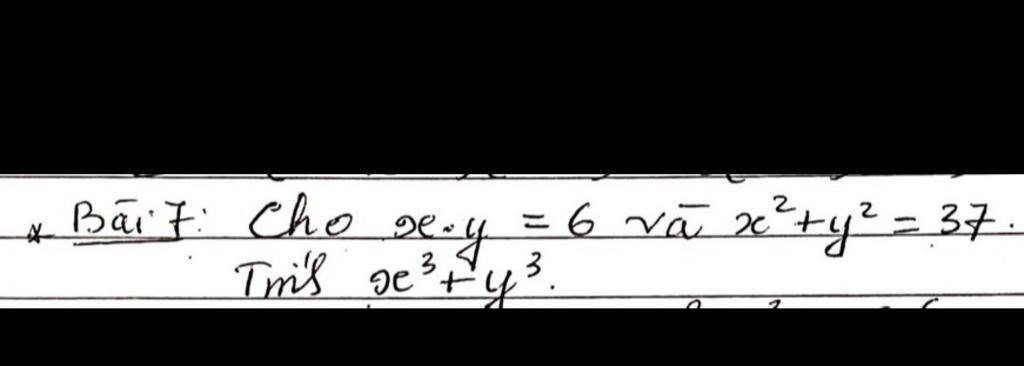 * Bài 7: Cho x.y = 6 và x² + y² = 37.
Tính x³ + y³.